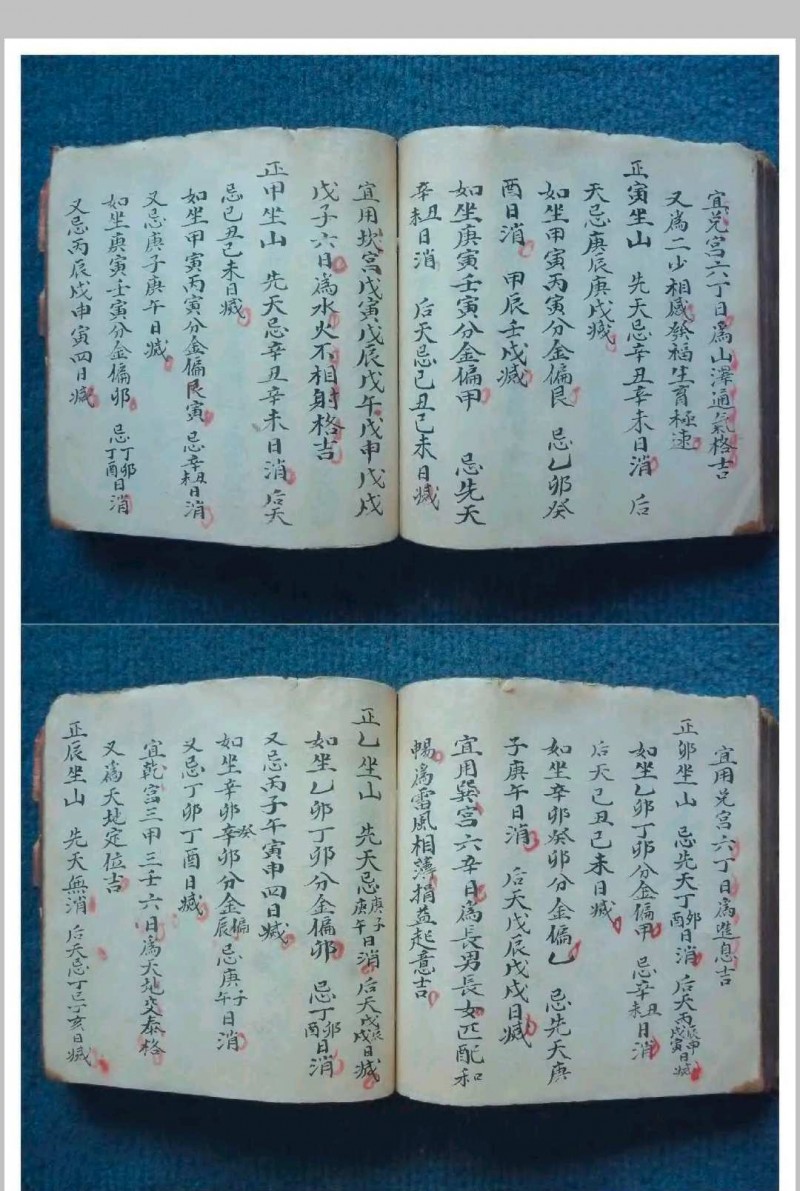 宜兑宫六丁日為山澤通氣格吉
又為二少相感發福生育極速
正寅坐山 先天忌辛丑辛未日消 后
天忌庚辰庚戌日滅
如坐甲寅丙寅分金偏艮 忌乙卯癸
酉日消 甲辰壬戌滅
如坐庚寅壬寅分金偏甲 忌先天
辛丑未日消 后天忌己丑己未日滅
宜用坎宫戊寅戊辰戊午戊申戊戌
戊子六日為水火不相射格吉
正甲坐山 先天忌辛丑辛未日消 后天
忌己丑己未日滅
如坐甲寅丙寅分金偏艮寅 忌辛丑未日消
又忌庚子庚午日滅
如坐庚寅壬寅分金偏卯 忌丁卯丁酉日消
又忌丙辰戌申寅四日滅
宜用兑宫六丁日為進息吉
正卯坐山 忌先天丁卯酉日消 后天丙辰申戌寅日滅
如坐乙卯丁卯分金偏甲 忌辛丑未日消
后天己丑己未日滅
如坐辛卯癸卯分金偏乙 忌先天庚
子庚午日消 后天戊辰戊戌日滅
宜用巽宫六辛日為長男長女匹配和
暢為雷風相薄捐益起意吉
正乙坐山 先天忌庚子庚午日消 后天戊辰戊戌日滅
如坐乙卯丁卯分金偏卯 忌丁卯酉日消
又忌丙子午寅申四日滅
如坐辛卯辛癸卯分金偏辰 忌庚子午日消
又忌丁卯丁酉日滅
宜乾宫三甲三壬六日為天地交泰格
又為天地定位吉
正辰坐山 先天無消 后天忌丁巳丁亥日滅